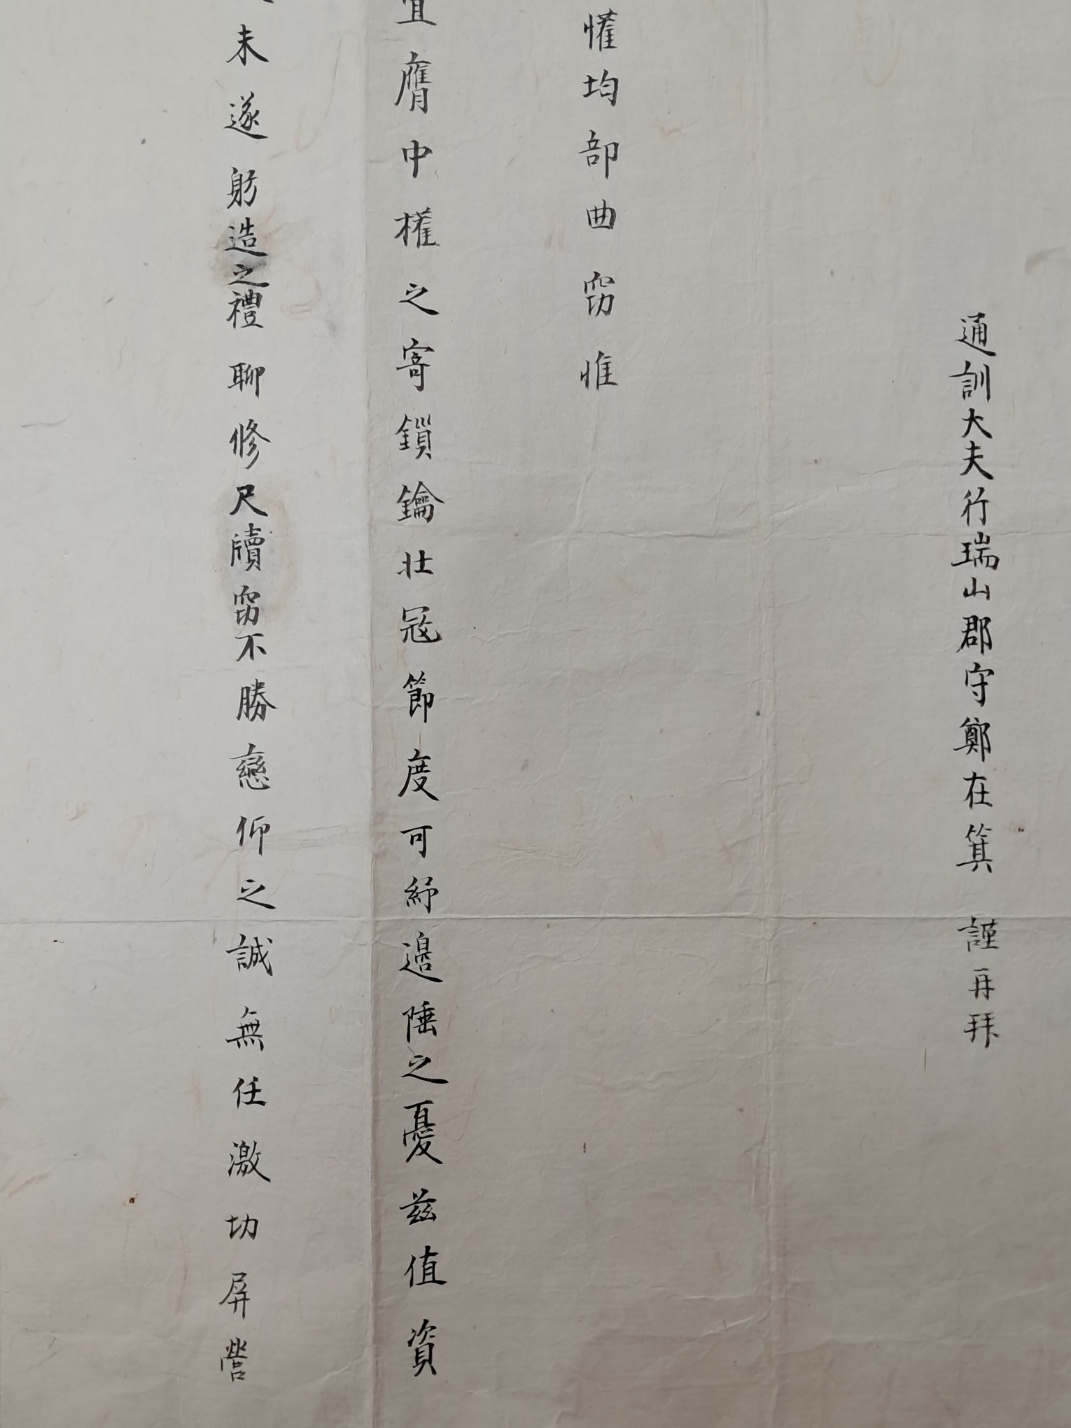 通訓大夫行瑞山郡守鄭在箕 謹再拜
懽均部曲窃惟
宜膺中權之寄鎖鑰壮冦節度可紓邉陲之憂兹值資
未遂躬造之禮聊修尺牘窃不勝戀仰之誠無任激切屏營